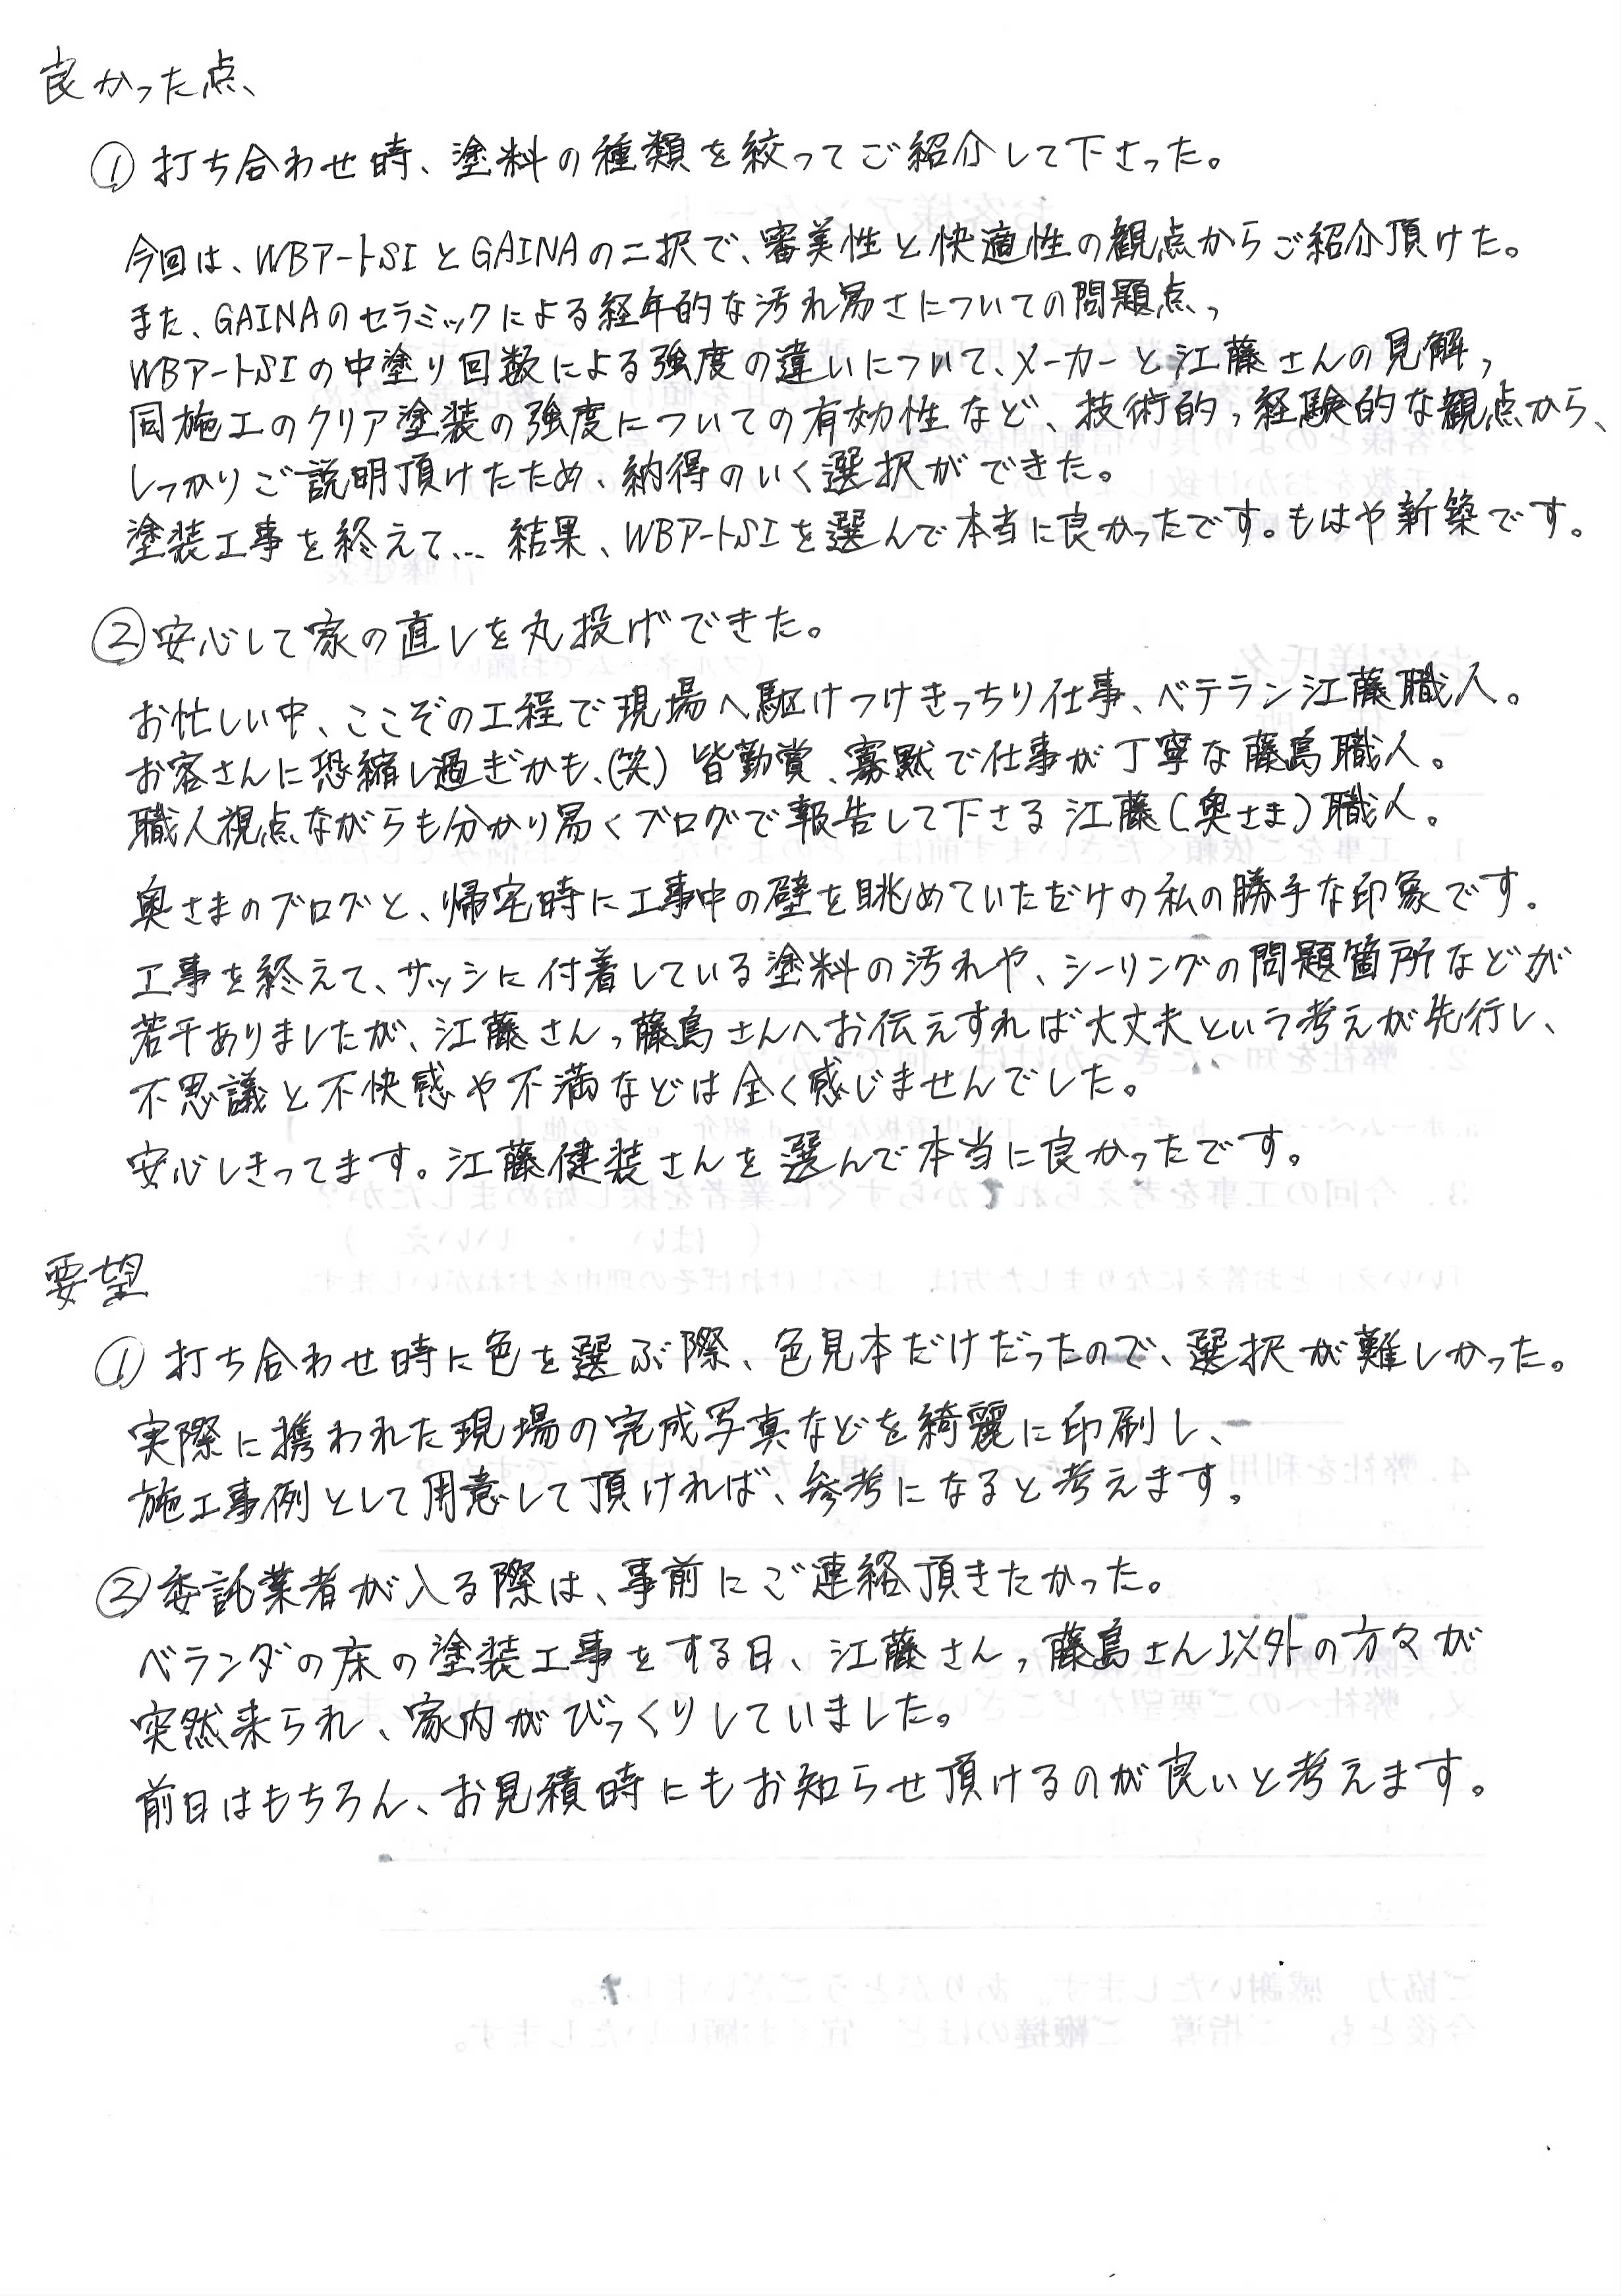 良かった点、
① 打ち合わせ時、塗料の種類を絞ってご紹介して下さった。
今回は、WBアートSIとGAINAの二択で、審美性と快適性の観点からご紹介頂けた。
また、GAINAのセラミックによる経年的な汚れ易さについての問題点,
WBアートSIの中塗り回数による強度の違いについて、メーカーと江藤さんの見解,
同施工のクリア塗装の強度についての有効性など、技術的,経験的な観点から、
しっかりご説明頂けたため、納得のいく選択ができた。
塗装工事を終えて… 結果、WBアートSIを選んで本当に良かったです。もはや新築です。
② 安心して家の直しを丸投げできた。
お忙しい中、ここぞの工程で現場へ駆けつけきっちり仕事、ベテラン江藤職人。
お客さんに恐縮し過ぎかも、(笑) 皆勤賞、寡黙で仕事が丁寧な藤島職人。
職人視点ながらも分かり易くブログで報告して下さる江藤(奥さま)職人。
奥さまのブログと、帰宅時に工事中の壁を眺めていただけの私の勝手な印象です。
工事を終えて、サッシに付着している塗料の汚れや、シーリングの問題箇所などが
若干ありましたが、江藤さん,藤島さんへお伝えすれば大丈夫という考えが先行し、
不思議と不快感や不満などは全く感じませんでした。
安心しきってます。江藤健装さんを選んで本当に良かったです。
要望
① 打ち合わせ時に色を選ぶ際、色見本だけだったので、選択が難しかった。
実際に携われた現場の完成写真などを綺麗に印刷し、
施工事例として用意して頂ければ、参考になると考えます。
② 委託業者が入る際は、事前にご連絡頂きたかった。
ベランダの床の塗装工事をする日、江藤さん,藤島さん以外の方々が
突然来られ、家内がびっくりしていました。
前日はもちろん、お見積時にもお知らせ頂けるのが良いと考えます。